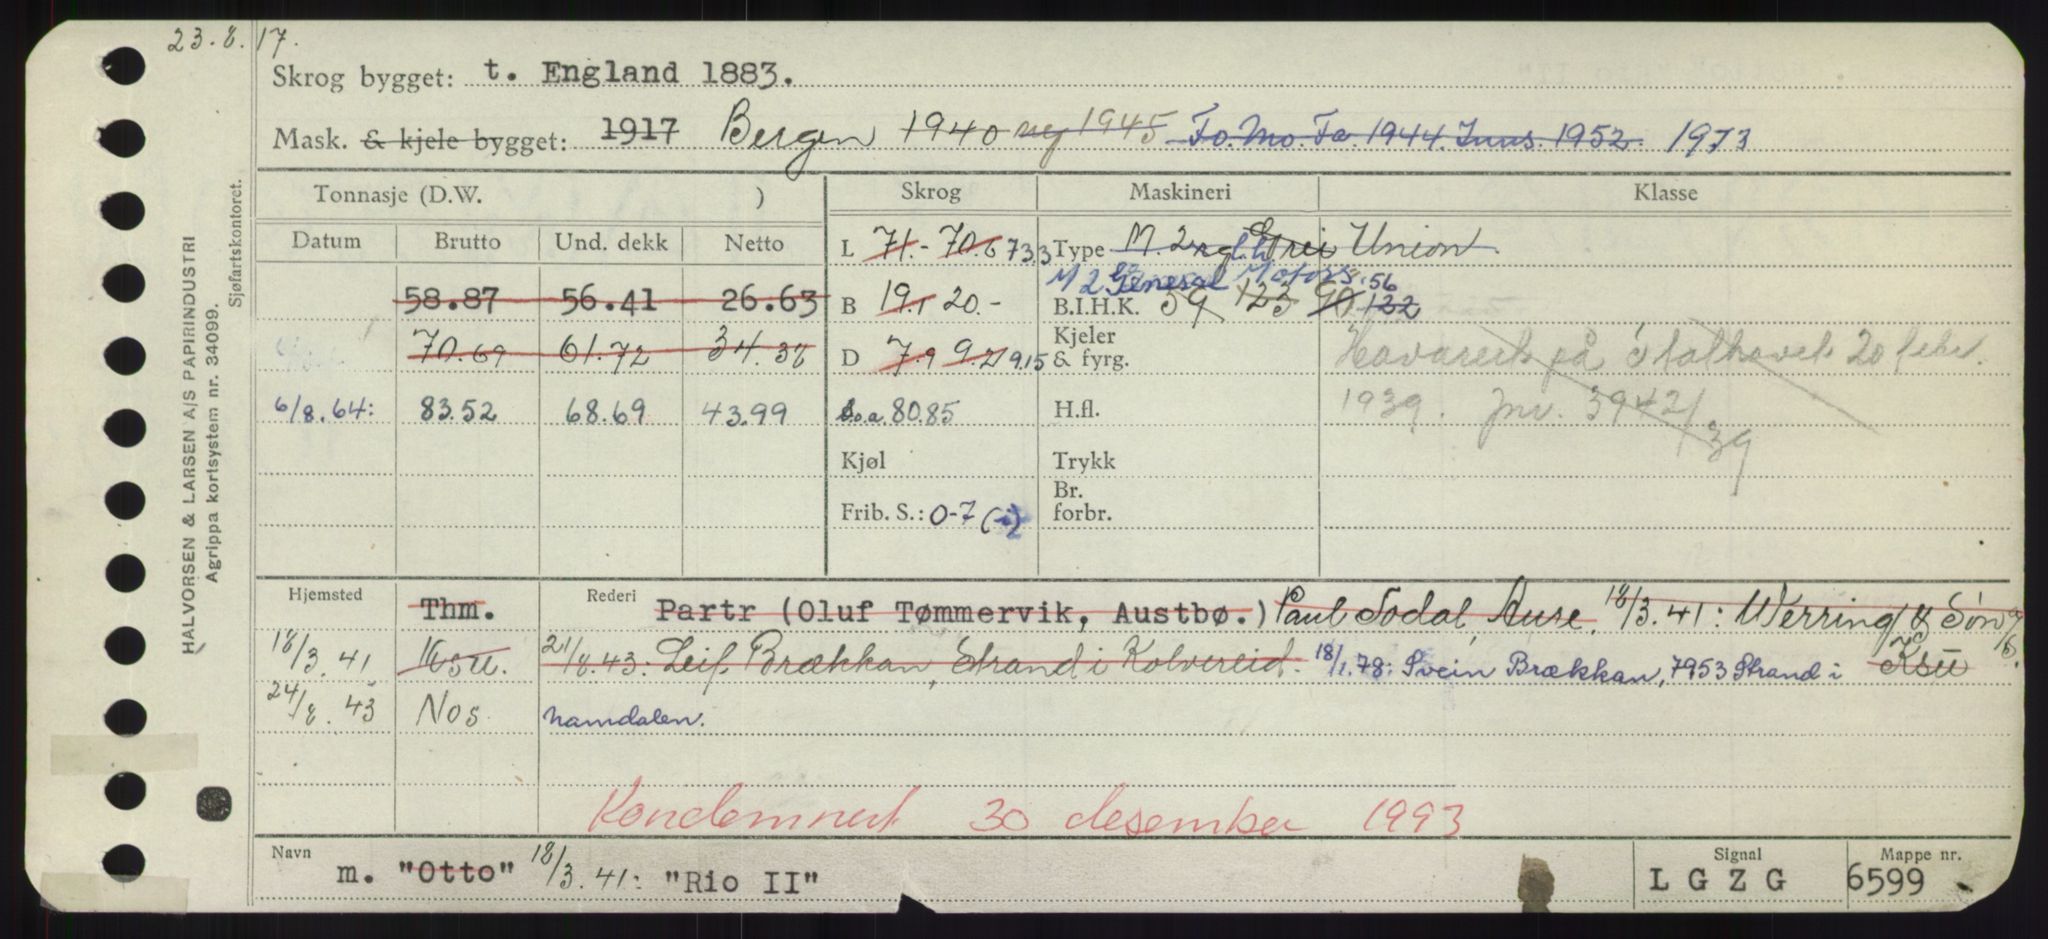 23.8.17.
Skrog bygget: t. England 1883.
Mask. & kjele bygget: 1917 Bergen 1940 ny 1945 Fo. Mo. Fa. 1944. Inns. 1952. 1973
Tonnasje (D.W. ) Skrog Maskineri Klasse
Datum Brutto Und. dekk Netto L 71.- 70.6 73.3 Type M. 2 Union
M 2 General Motors.56
58.87 56.41 26.63 B 19.1 20.- B.I.H.K. 39 123 90 122
70.69 61.72 34.38 D 7.9 9.2 9.15 Kjeler & fyrg. Havarert på Stathavet 20 febr.
6/8.64: 83.52 68.69 43.99 L.o.a. 80.85 H.fl. 1939. Jnr. 3942/39
Kjøl Trykk
Frib. S.: 0-7 Br. forbr.
Hjemsted Thm. Rederi Partr (Oluf Tømmervik, Austbø.) Paul Sodal, Aure. 18/3.41: Werring & Søn A/S.
18/3.41 Ksu. 21/8.43: Leif Brækkan, Strand i Kolvereid. 18/1.78: Svein Brækkan, 7953 Strand i Ksu
24/8.43 Nos namdalen.
Kondemnert 30 desember 1993
Navn m. "Otto" 18/3.41: "Rio II" Signal L G Z G Mappe nr. 6599
HALVORSEN & LARSEN A/S PAPIRINDUSTRI
Agrippa kortsystem nr. 34099.
Sjøfartskontoret.